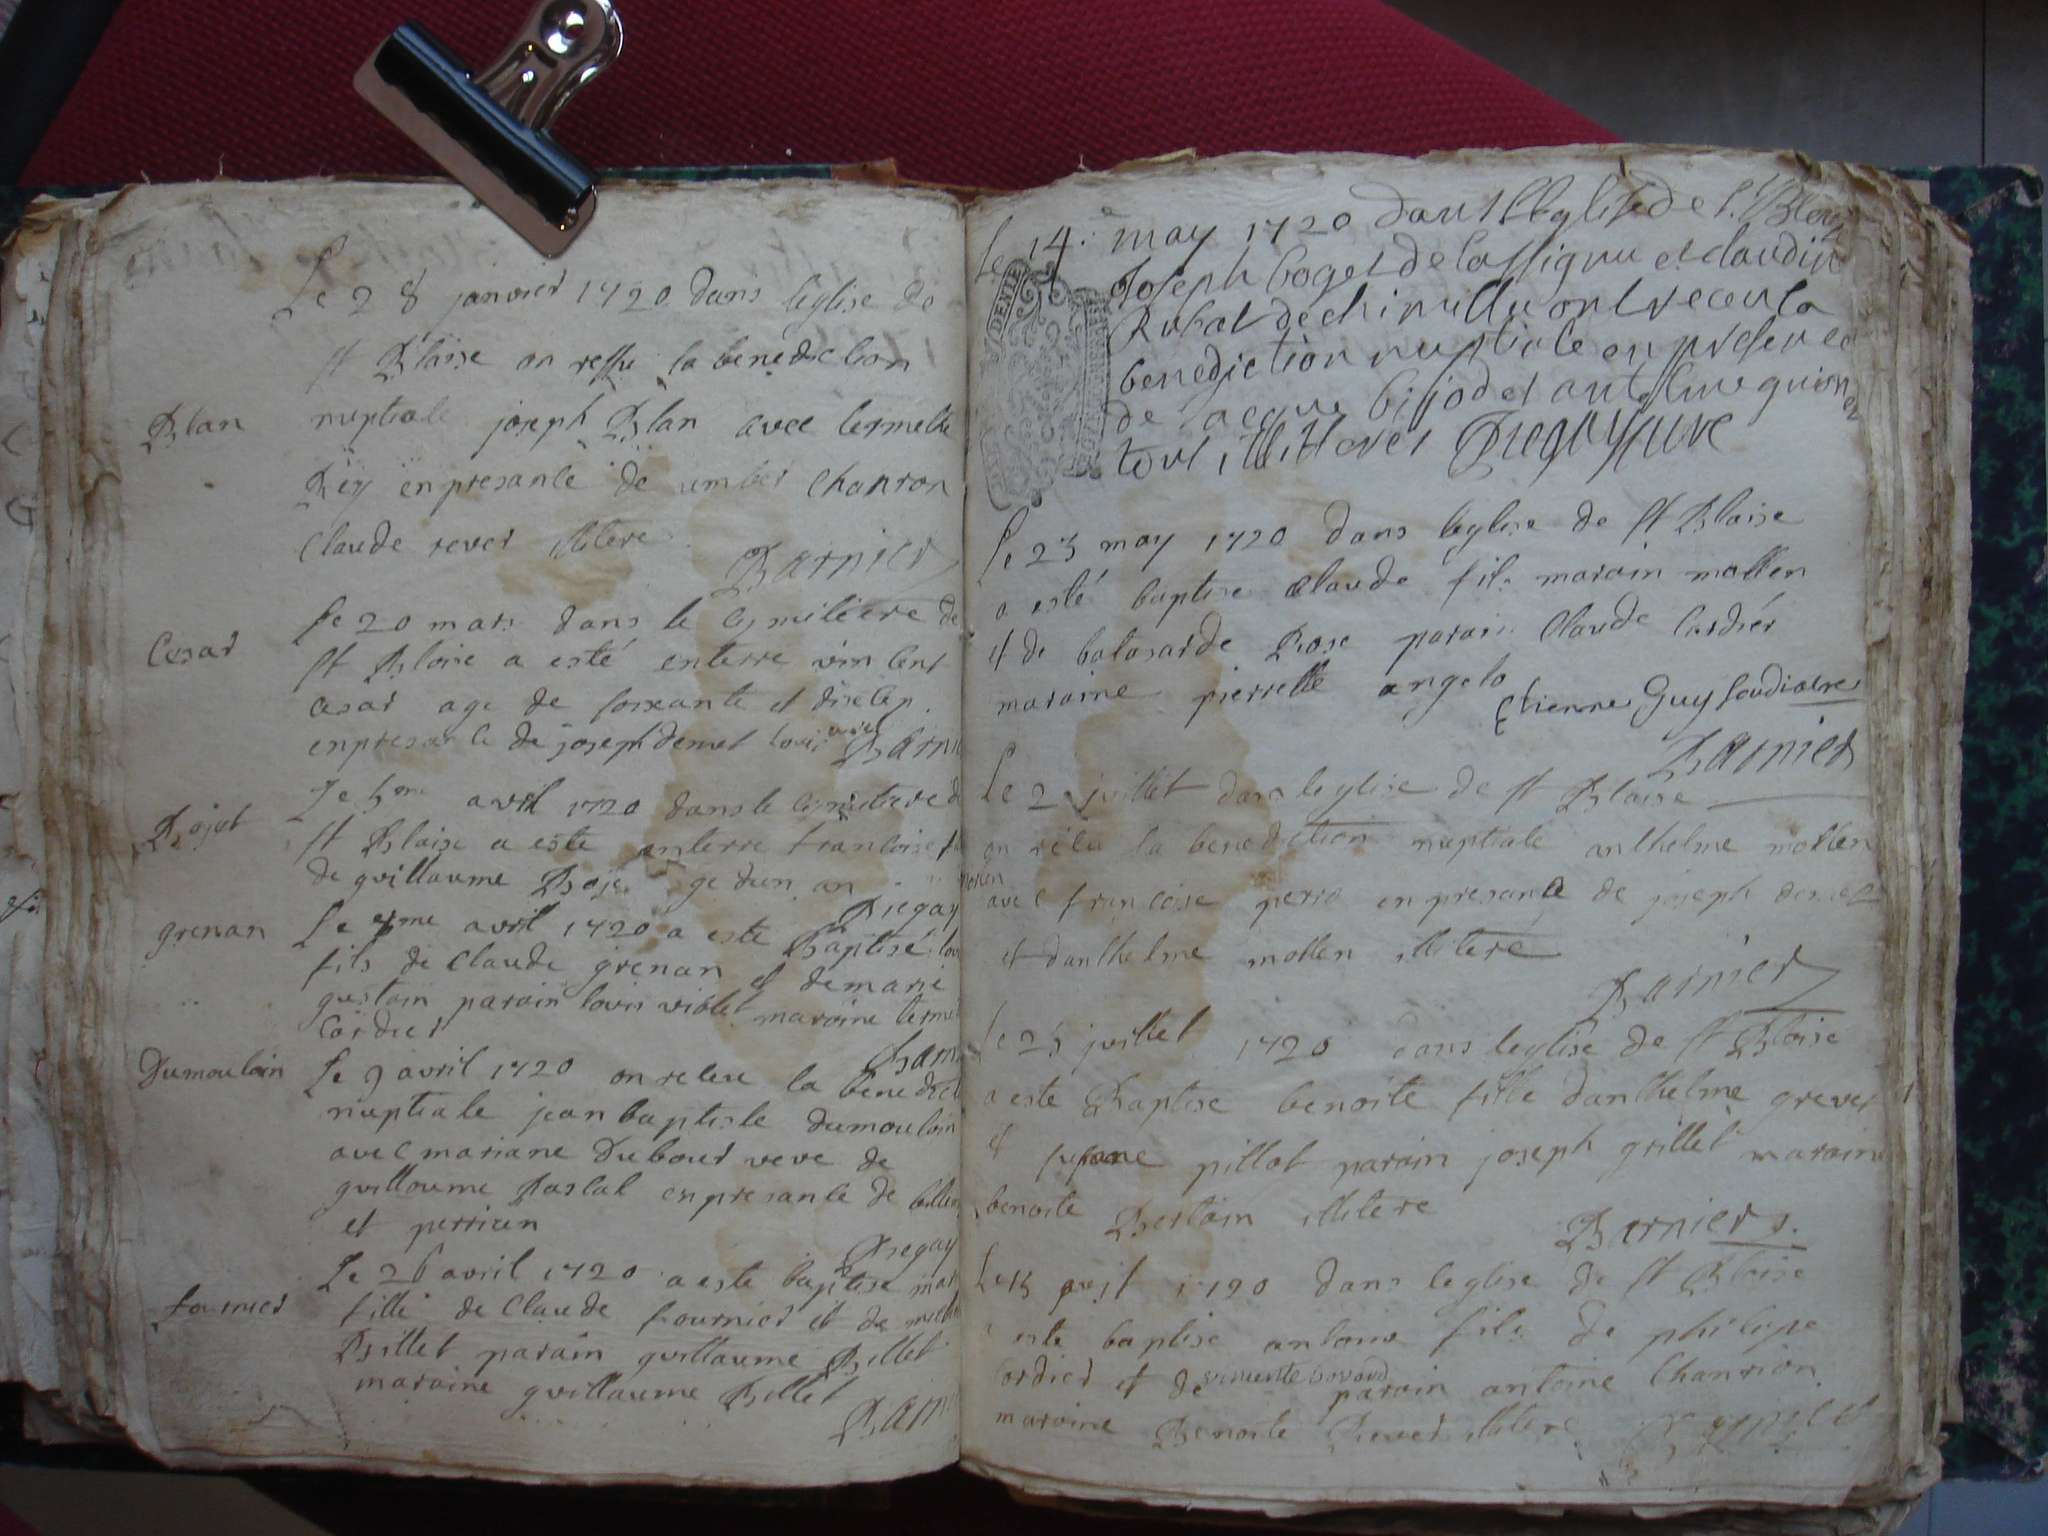 Le 28 janvier 1720 dans leglise de
st Blaise on ressu la benediction
Blan
nuptiale joseph Blan avec lermette
Rey enpresante de umber chanron
Claude rever illitere
Barnier
Cesar
Le 20 mars dans le cymitiere de
st Blaise a esté enterre vincent
cesar age de soixante et disetep
enpresante de joseph demet louis
Barni
Le 5me avril 1720 dans le cimitiere d
Bojat
st Blaise a este enterre francoise
de guillaume gedun an
Diegay
grenan
Le avril 1720 a este Baptise lou
fils de Claude grenan et demarie
gustain parain louis violet maraine terme
Cordier
Barni
Dumoulain
Le 9 avril 1720 on releu la benedict
nuptiale jean baptiste dumoulain
avec mariane Dubour veve de
guillaume Paslat enpresante de
et perrien
Diegay
Le 26 avril 1720 a este baptise mar
fournier
fille de Claude fournier et de
Billet parain guillaume Billet
maraine guillaume Billet
Barni
Le 14 may 1720 dans lEglise de St Blesy
Joseph boget de lassignu et claudin
Rubat de ont receu la
benediction nuptiale en presence
de Jacque bijod et antelme guion
tout illitores
DENIE
Le 23 may 1720 dans leglise de st Blaise
a esté baptise claude fils marain mollen
et de balasarde Rose parain Claude Cordier
maraine pierrette angelo
Etienne Guy
Barnier
Le 2 juillet dans leglise de st Blaise
on releu la benediction nuptiale anthelme mollen
avec francoise perra enpresante de joseph
et danthelme mollen illitere
Barnier
Le 25 juillet 1720 dans leglise de st Blaise
a este Baptise benoite fille danthelme grever
et pillot parain joseph grillet maraine
benoite Bertain illitere
Barnier
Le 15 1720 dans leglise de st Blaise
a este baptise antoine fils de philipe
Cordier et de parain antoine Chanrion
maraine Benoite Rever illitere